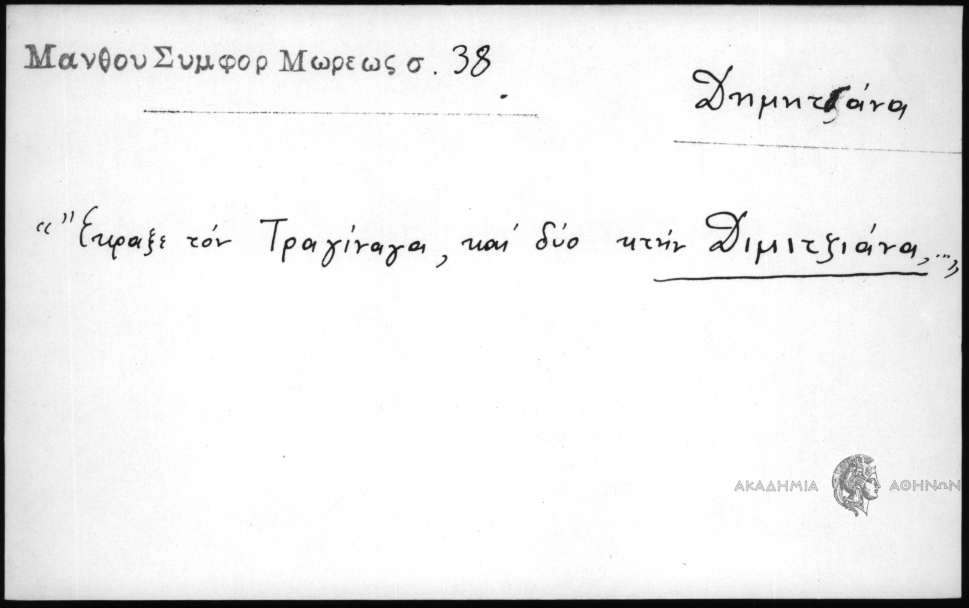 Μανθου Συμφορ Μωρεως σ. 38
Δημητσάνα
“"Έκραξε τόν Τραγίναγα, καί δύο κτήν Διμιτξιάνα,...„
ΑΚΑΔΗΜΙΑ ΑΘΗΝΩΝ